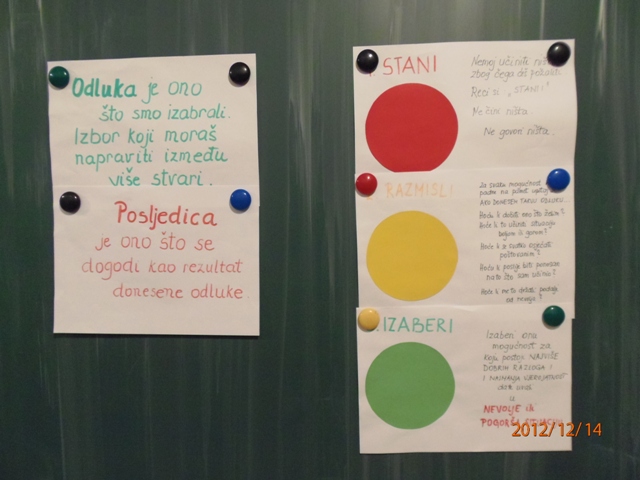 Odluka je ono
što smo izabrali.
Izbor koji moraš
napraviti između
više stvari.
Posljedica
je ono što se
dogodi kao rezultat
donesene odluke
STANI
Nemoj učiniti
zbog čega ćeš požaliti
Reci si "STANI!"
Ne čini ništa.
Ne govori ništa.
RAZMIŠLI
Za svaku mogućnost
AKO DONESEM TAKVU ODLUKU
Hoću li dobiti ono što želim?
Hoće li to učiniti situaciju
boljom ili gorom?
Hoću li se osjećati
poštovanim?
Hoću li poslije biti ponosan
na to što sam učinio?
Hoće li me to dovesti
do nevolje?
IZABERI
Izaberi onu
mogućnost za
koju postoji NAJVIŠE
DOBRIH RAZLOGA I
I NAJMANJA VJEROJATNOST
u
NEVOLJE ili
2012/12/14